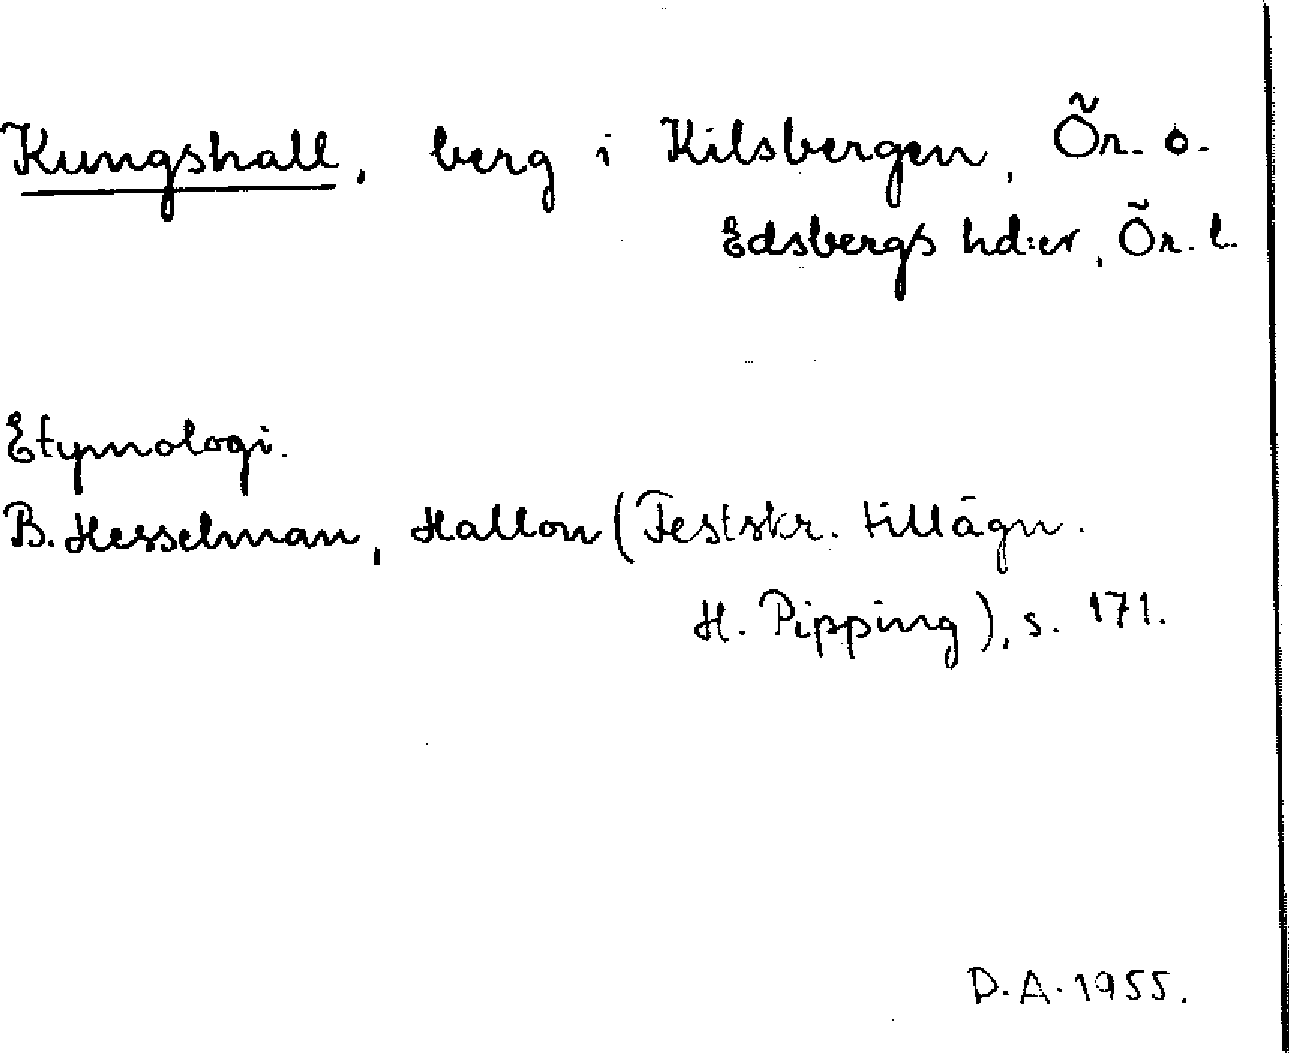 Kungshall, berg i Kilsbergen, Ör. o.
Edsbergs hd:er, Ör. l.
Etymologi.
B. Hesselman, Hallon (Festskr. tillägn.
H. Pipping), s. 171.
D. A. 1955.